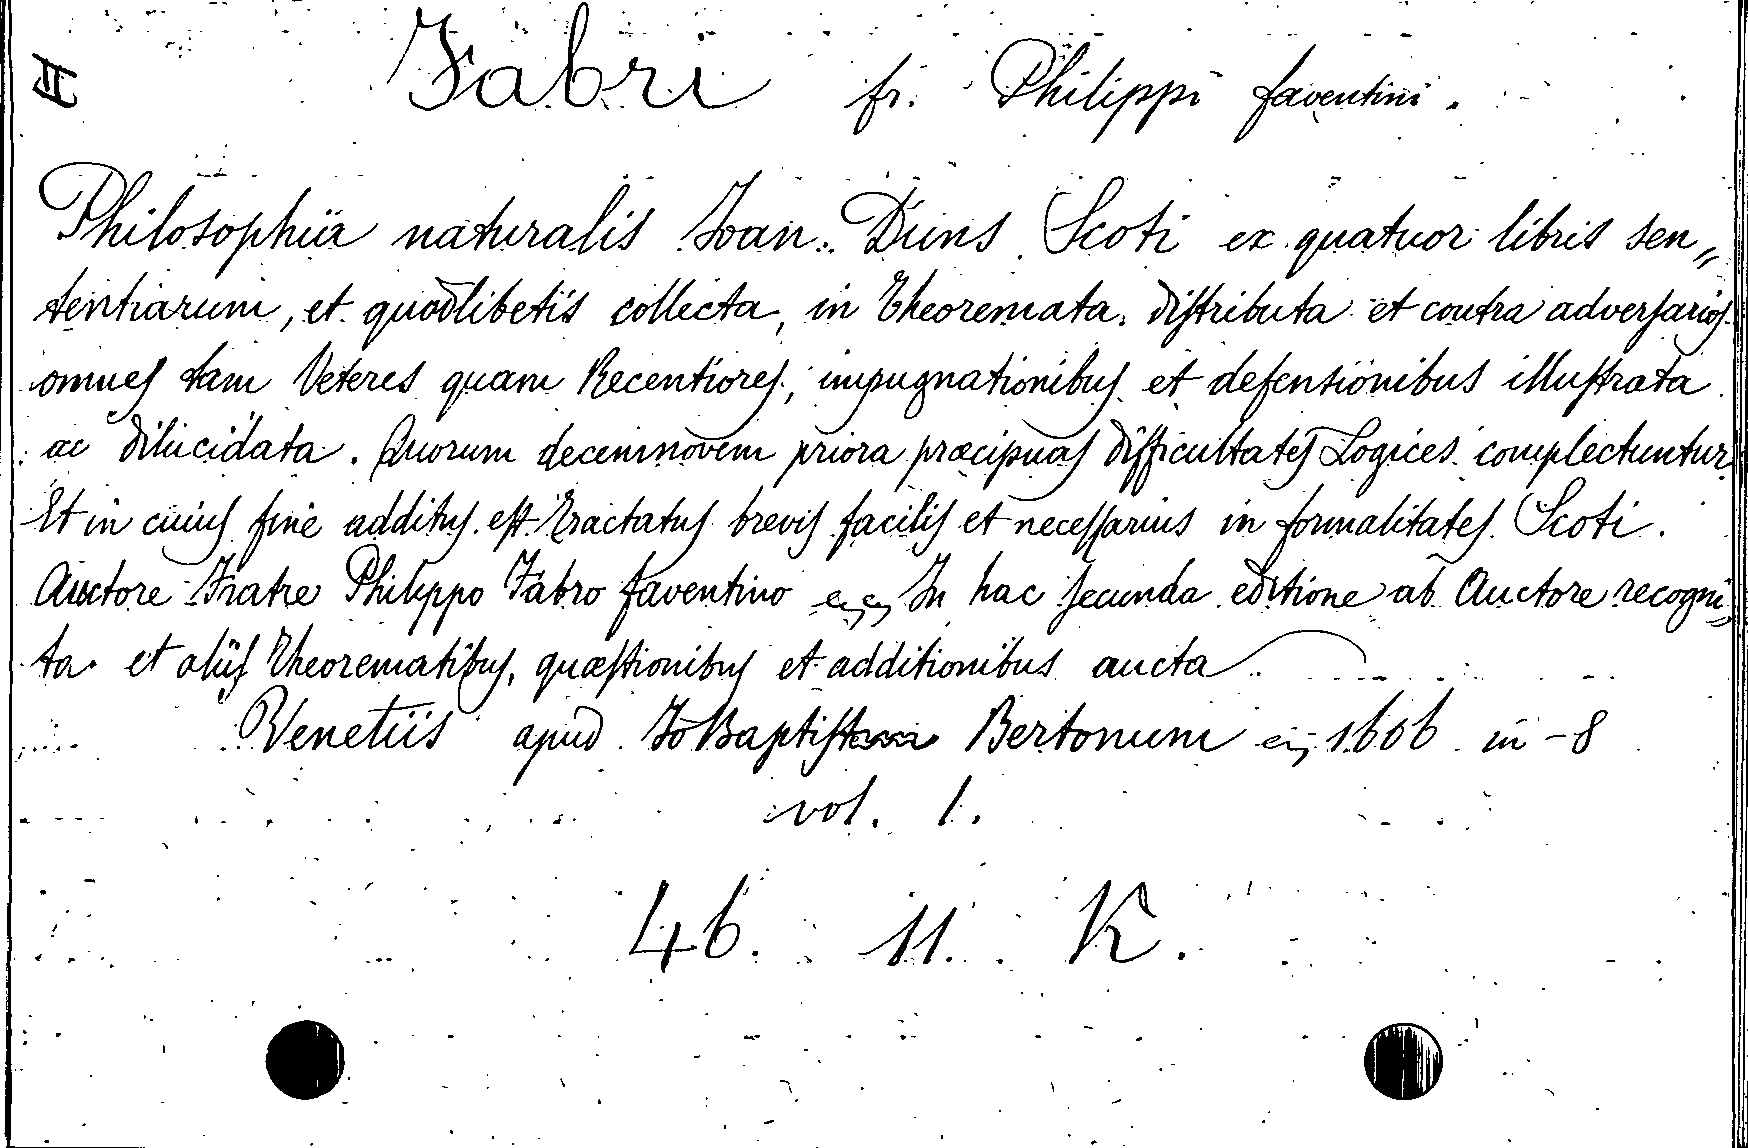 II Fabri fr. Philippi faventini.
Philosophia naturalis Joan. Duns Scoti ex quatuor libris sen„
tentiarum, et quodlibetis collecta, in theoremata distributa et contra adversarios
omnes tam Veteres quam Recentiores, impugnationibus et defensionibus illustrata
ac dilucidata. Quorum decemnovem priora præcipuas difficultates Logices complectuntur
Et in cuius fine additus est tractatus brevis facilis et necessarius in formalitates Scoti.
Auctore Fratre Philippo Fabro faventino In hac secunda editione ab Auctore recogni„
ta et aliis theorematibus, quæstionibus et additionibus aucta
Venetiis apud Jo Baptistam Bertonum 1606 in-8
vol. 1.
46. 11. K.